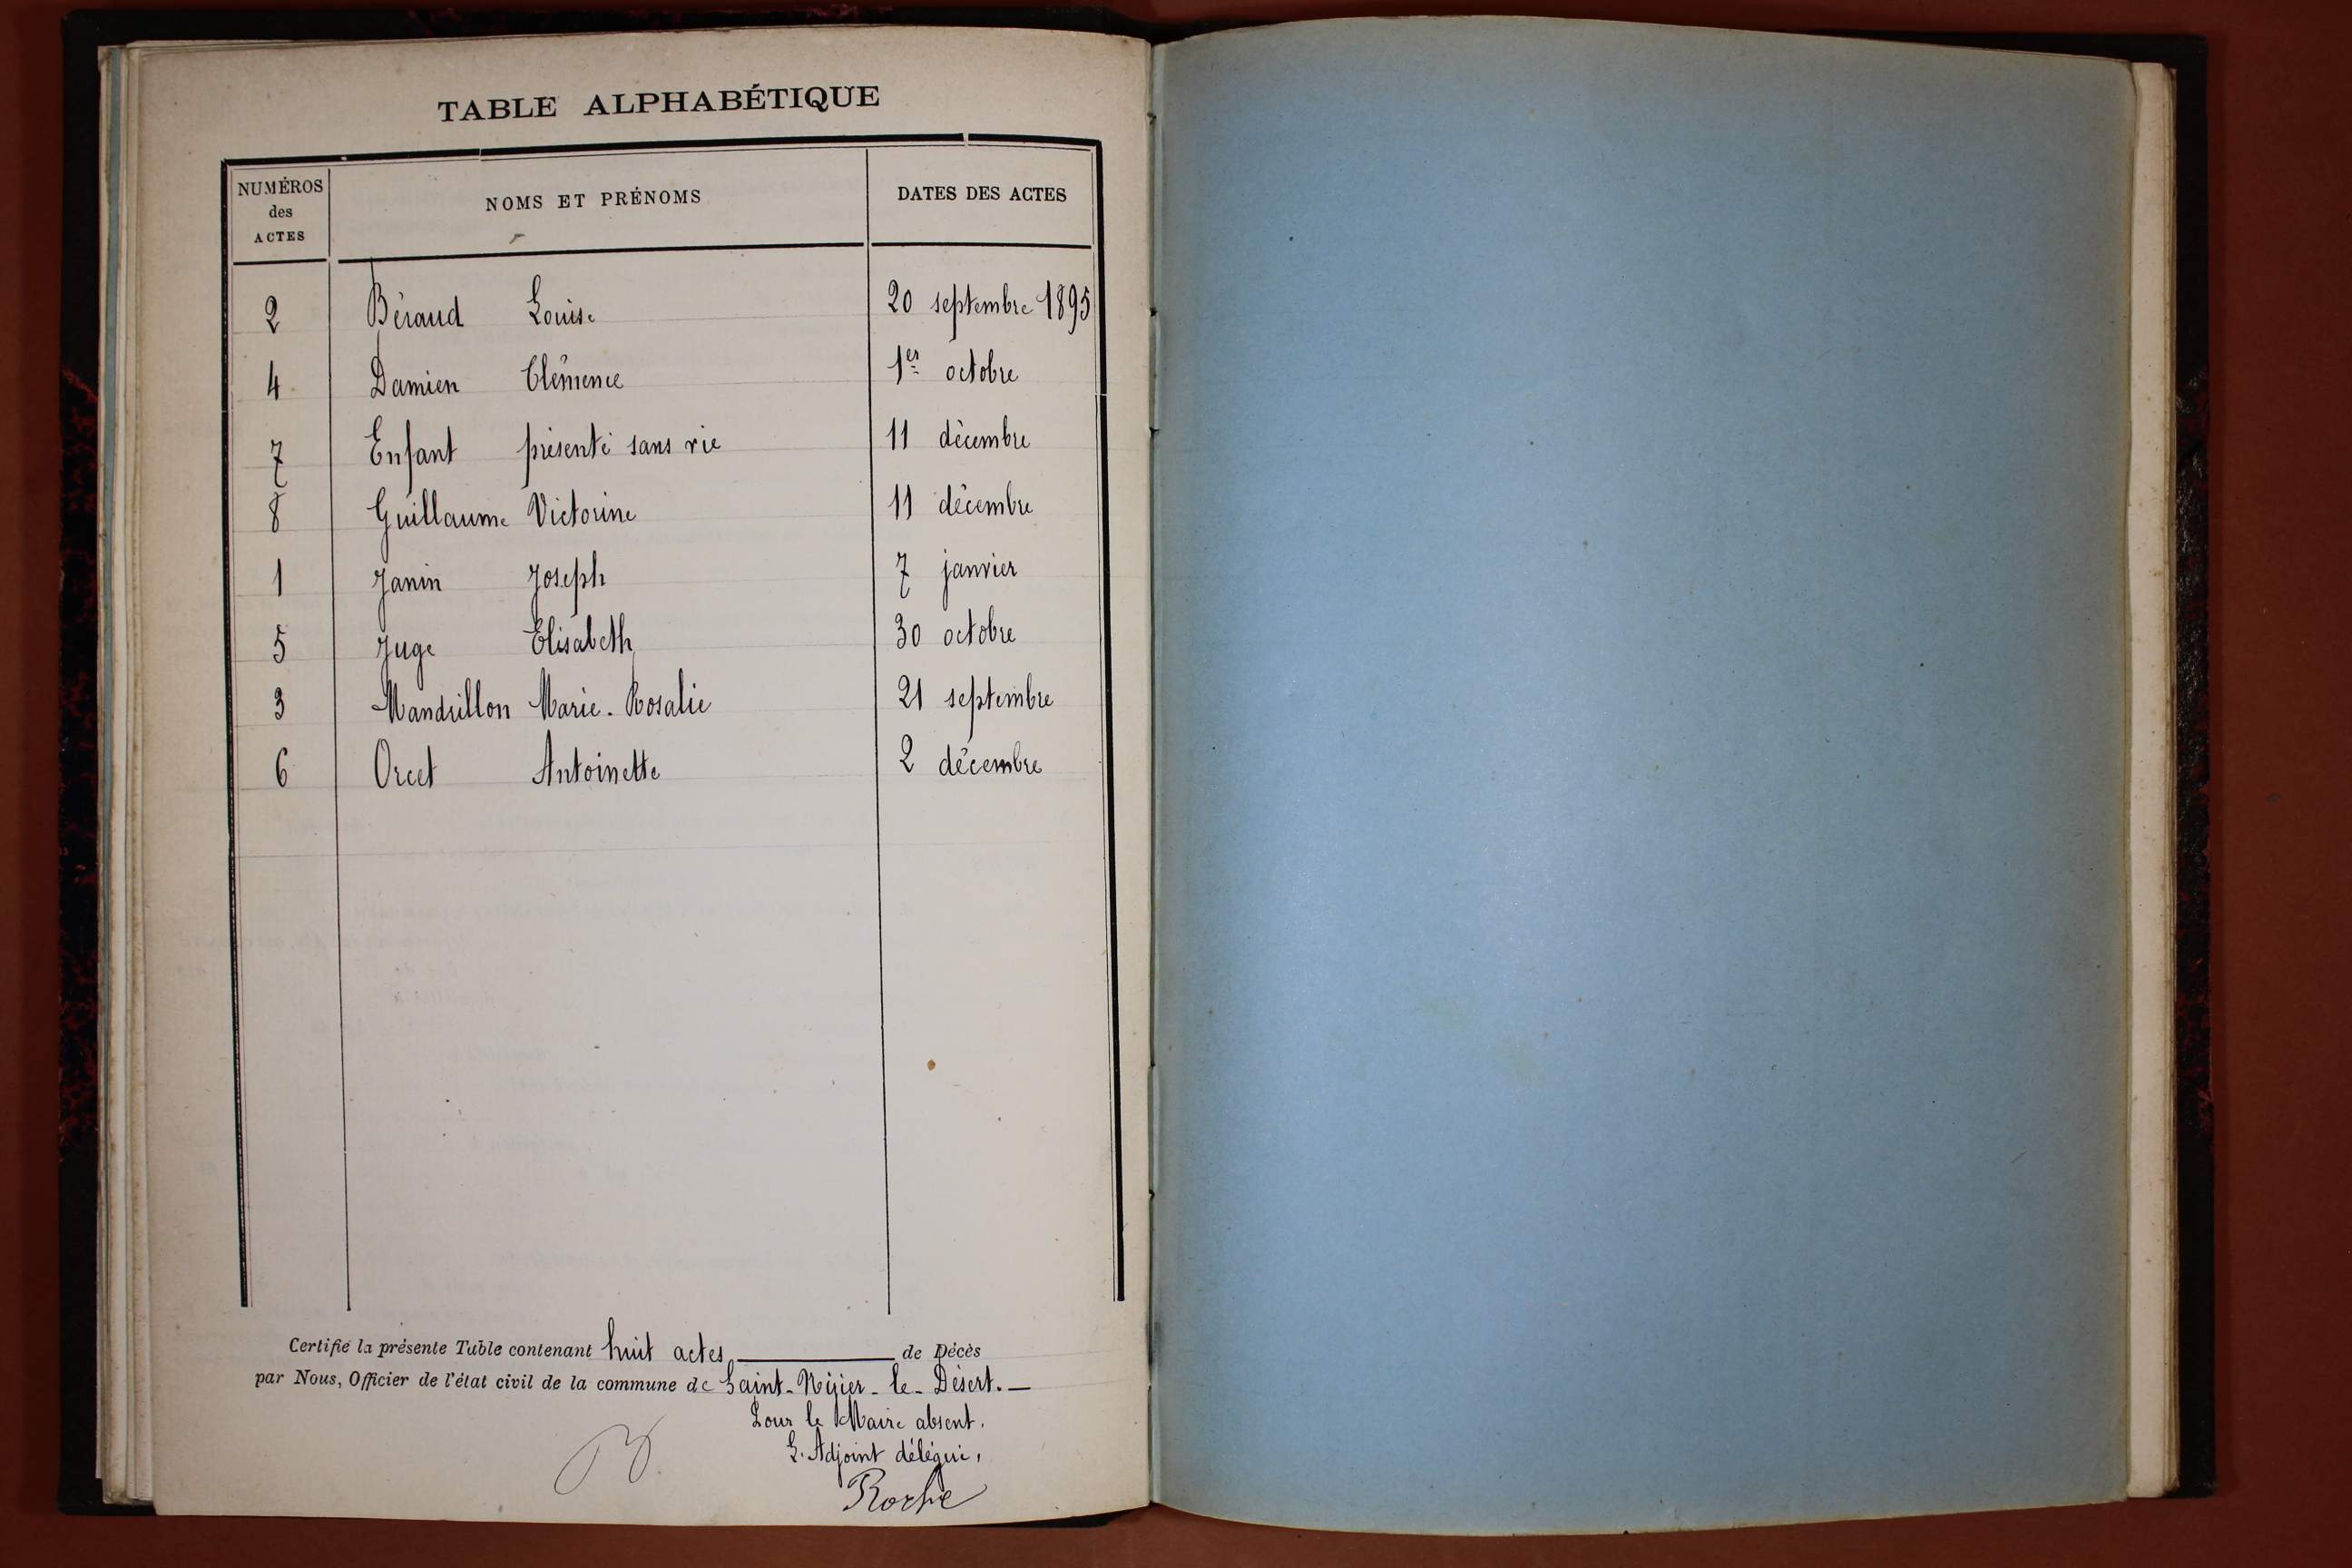 TABLE ALPHABÉTIQUE
NUMÉROS des ACTES NOMS ET PRÉNOMS DATES DES ACTES
2 Béraud Louise 20 septembre 1895
4 Damien Clémence 1er octobre
7 Enfant présenté sans vie 11 décembre
8 Guillaume Victorine 11 décembre
1 Janin Joseph 7 janvier
5 Juge Elisabeth 30 octobre
3 Mandrillon Marie-Rosalie 21 septembre
6 Orcet Antoinette 2 décembre
Certifié la présente Table contenant huit actes de Décès
par Nous, Officier de l'état civil de la commune de Saint-Nizier-le-Désert.
Pour le Maire absent.
L'Adjoint délégué,
Roche